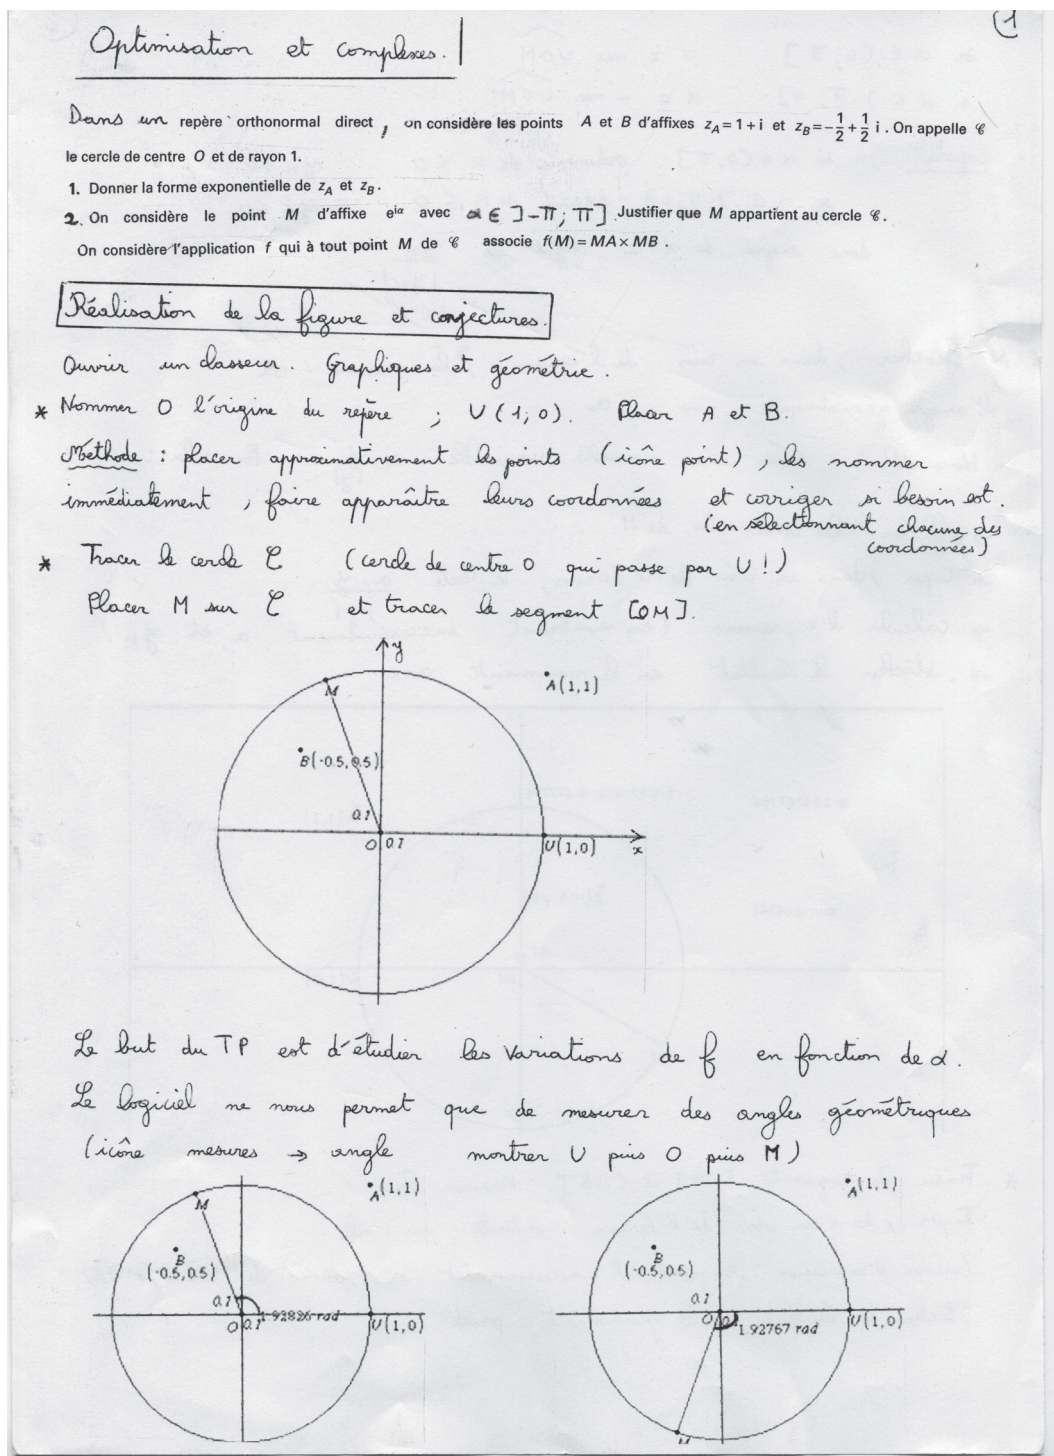 (1
Optimisation et complexes.
Dans un repère orthonormal direct, on considère les points A et B d'affixes z_A = 1 + i et z_B = -1/2 + 1/2 i. On appelle 𝒞
le cercle de centre O et de rayon 1.
1. Donner la forme exponentielle de z_A et z_B.
2. On considère le point M d'affixe e^{iα} avec α ∈ ]-π; π] Justifier que M appartient au cercle 𝒞.
On considère l'application f qui à tout point M de 𝒞 associe f(M) = MA × MB.
Réalisation de la figure et conjectures.
Ouvrir un classeur. Graphiques et géométrie.
* Nommer O l'origine du repère ; U (1; 0). Placer A et B.
Méthode : placer approximativement les points (icône point), les nommer
immédiatement, faire apparaître leurs coordonnées et corriger si besoin est.
(en sélectionnant chacune des
coordonnées)
* Tracer le cercle 𝒞 (cercle de centre O qui passe par U !)
Placer M sur 𝒞 et tracer le segment [OM].
y
M
A(1,1)
B(-0.5,0.5)
0.1
O 0.1
U(1,0)
x
Le but du TP est d'étudier les variations de f en fonction de α.
Le logiciel ne nous permet que de mesurer des angles géométriques
(icône mesures → angle montrer U puis O puis M)
M
A(1,1)
B
(-0.5,0.5)
0.1
1.92826 rad
O 0.1
U(1,0)
A(1,1)
B
(-0.5,0.5)
0.1
O
1.92767 rad
U(1,0)
M